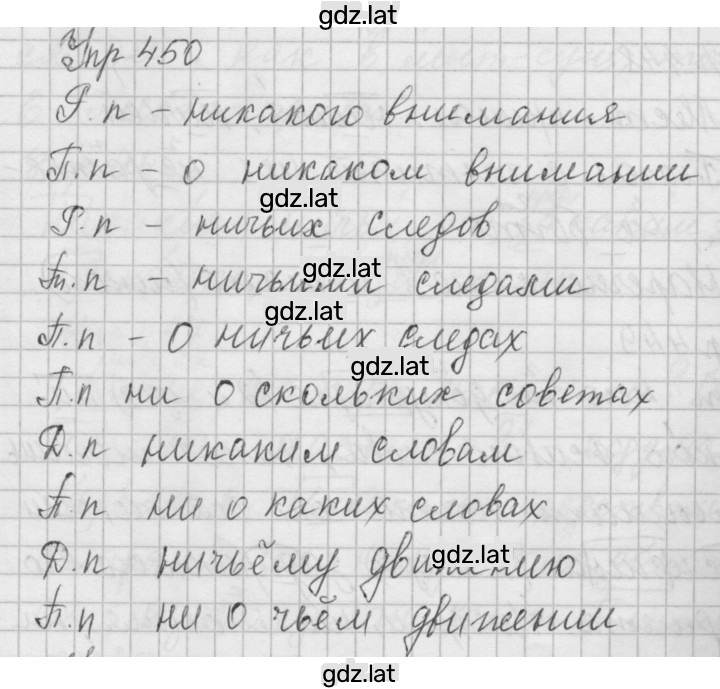 gdz.lat
Упр 450
Р.п – никакого внимания
П.п – о никаком внимании
gdz.lat
Р.п – ничьих следов
gdz.lat
Тп.п – ничьими следами
gdz.lat
П.п – о ничьих следах
gdz.lat
П.п ни о скольких советах
Д.п никаким словам
П.п ни о каких словах
gdz.lat
Д.п ничьёму движению
П.п ни о чьём движении
gdz.lat